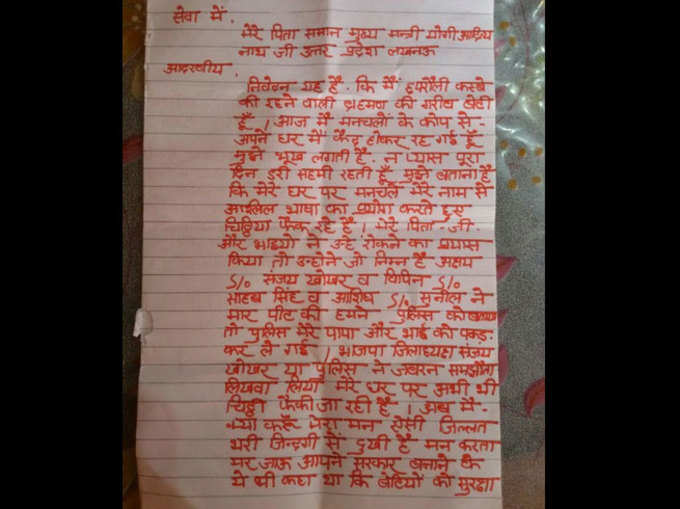 सेवा में.
मेरे पिता समान मुख्य मन्त्री योगी आदित्य
नाथ जी उत्तर प्रदेश लखनऊ
आदरणीय.
निवेदन यह है. कि मैं छपरौली कस्बे
की रहने वाली ब्रहमण की गरीब बेटी
हूँ । आज मैं मनचलों के कोप से.
अपने घर में कैद होकर रह गई हूँ
मुझे भूख लगती है. न प्यास पूरा
दिन डरी सहमी रहती हूँ. मुझे बताना है
कि मेरे घर पर मनचले मेरे नाम से
भाषा का प्रयोग करते हुए
चिट्ठिया फैंक रहे है । मेरे पिता. जी
और भाइयो ने उन्हे रोकने का प्रयास
किया तो उन्होने जो निम्न है अक्षय
S/o संजय खोखर व विपिन S/o
साहब सिंह व आशिष S/o सुनील ने
मार पीट की हमने पुलिस को
तो पुलिस मेरे पापा और भाई को पकड़.
कर ले गई । भाजपा जिलाध्यक्ष संजय
खोखर या पुलिस ने जबरन समझौता
लिखवा लिया मेरे घर पर अभी भी
चिट्ठी फैंकी जा रही है । अब मैं.
क्या करूँ मेरा मन ऐसी जिल्लत
भरी जिन्दगी से दुखी है मन करता
मर जाऊ आपने सरकार बनाने के
ये भी कहा था कि बेटियों को सुरक्षा